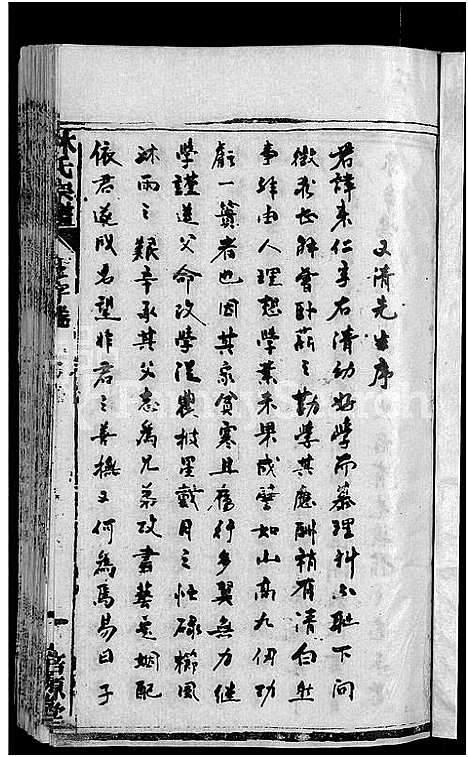 又清先生序
君諱東仁字右清幼好學而慕理科不耻下問
微君世解曾卧薪之勤學其應酬稍有清白此
事非由人理想學業未果成譬如山高九仞功
虧一簣者也因其家貧寒且舊行乡翼無力继
學謹遵父命改學從農披星戴月之忙碌櫛風
沐雨之艱辛承其父志為兄弟改書藝是姻配
依君遂成名望非君之善撫又何為焉易曰子
林氏宗譜